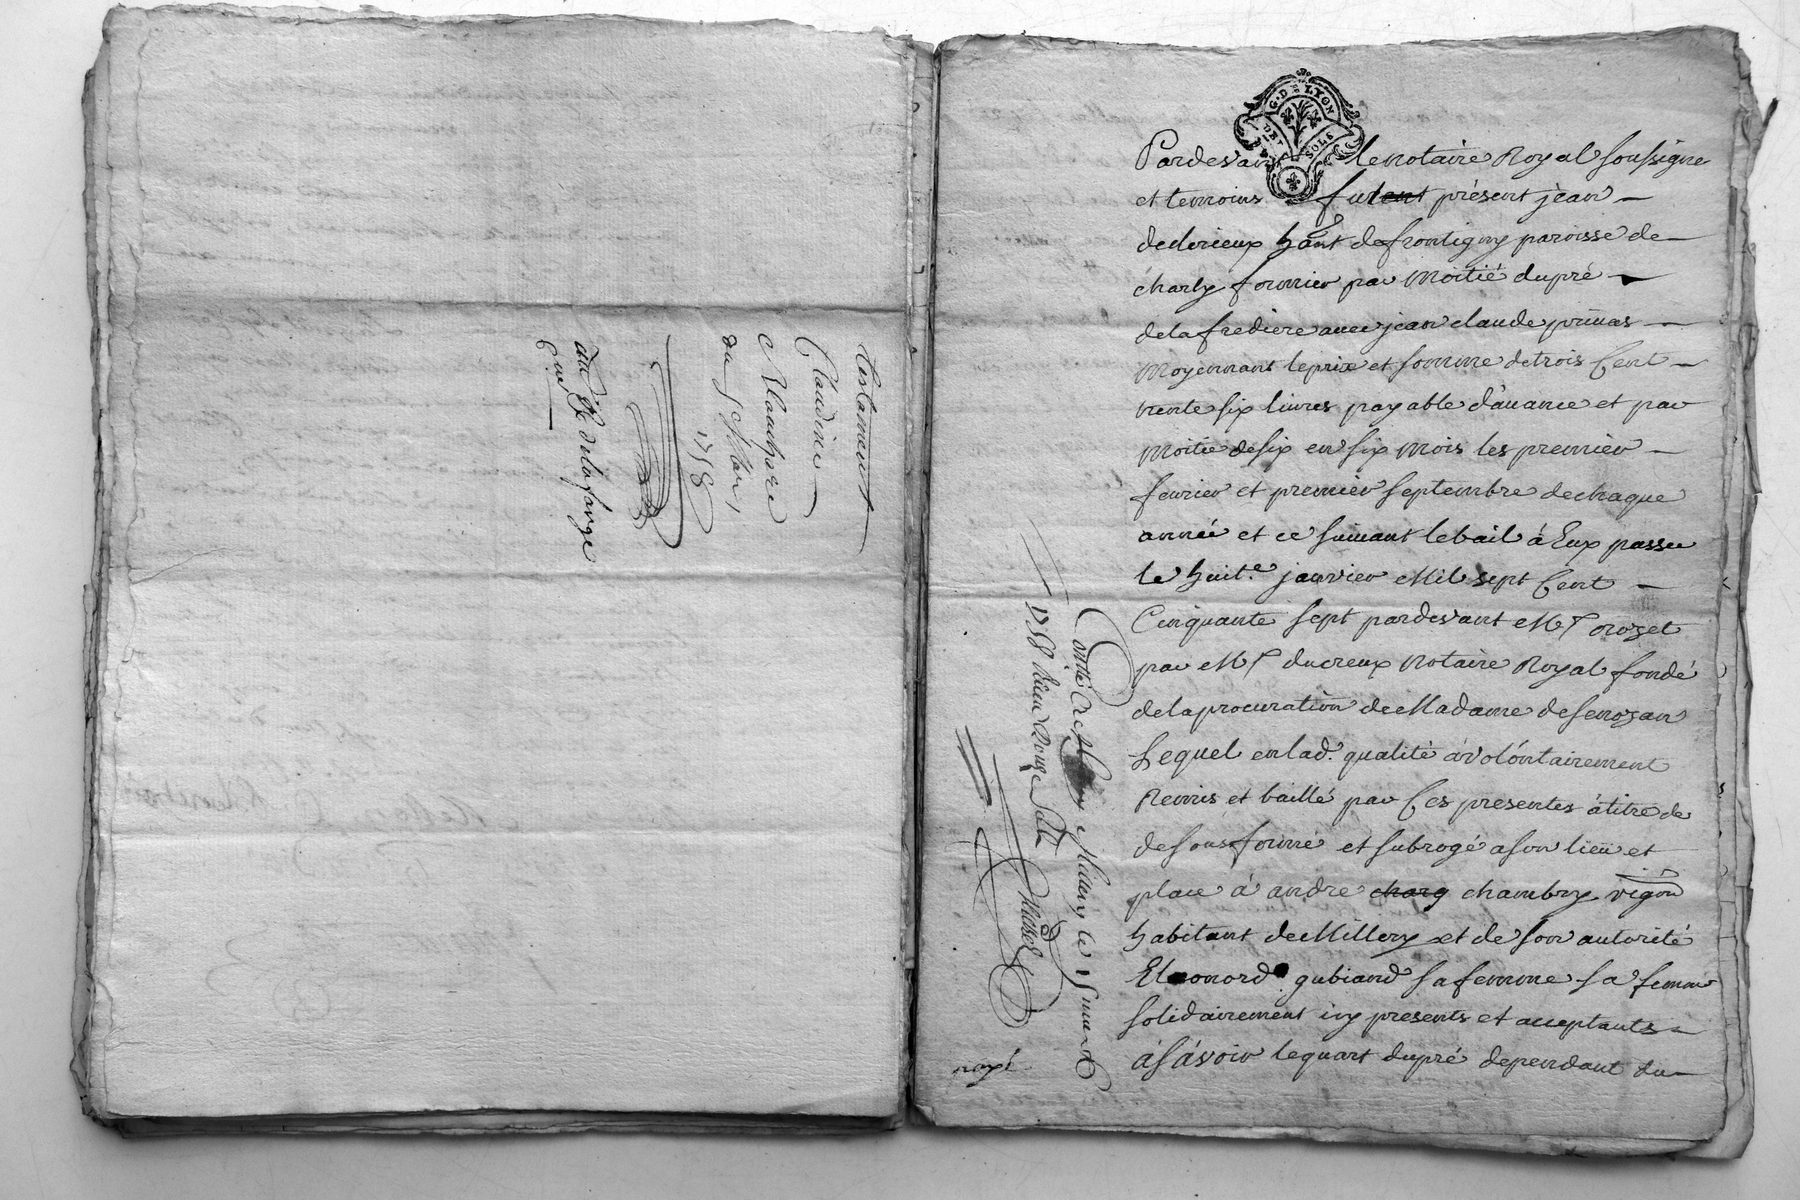 Testament
Claudine
du
1758
au Sr delafarge
G. DE LYON
DE
SOLS
Pardevant le notaire Royal soussigne
et temoins furent présent jean
dederieux habt de frontigny paroisse de
charly fermier par moitié du pré
de la frediere avec jean claude primas
moyennant le prix et somme de trois Cent
trente six livres payable d'avance et par
moitie de six en six mois les premier
fevrier et premier septembre de chaque
année et ce suivant le bail à Eux passee
le huit.e janvier mil sept Cent
Cinquante sept pardevant Me
par Me ducreux notaire Royal fondé
de la procuration de Madame de senozan
Lequel en lad. qualité a volontairement
Remis et baillé par Ces presentes à titre de
de sous ferme et subrogé a son lieu et
place à andre charg chambry vigon
habitant de Millery et de son autorité
Eleonord gubiand sa femme sa femme
solidairement icy presents et acceptants
à sâvoir le quart du pré dependant du
payé
Millery le
1758